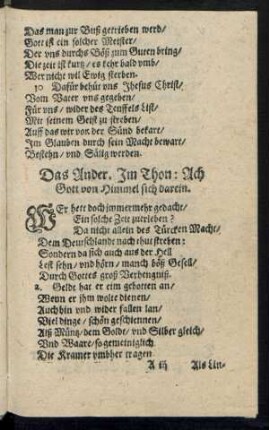 Das man zur Buß getrieben werd/
Gott ist ein solcher Meister/
Der vns durchs Böß zum Guten bring/
Die zeit ist kurtz/ es kehr bald vmb/
Wer nicht wil Ewig sterben.
10 Dafür behüt vns Jhesus Christ/
Vom Vater vns gegeben/
Für vns/ wider des Teuffels List/
Mit seinem Geist zu streben/
Auff das wir von der Sünd bekart/
Jm Glauben durch sein Macht bewart/
Bestehn/ vnd Sälig werden.
Das Ander. Jm Thon: Ach
Gott von Himmel sich darein.
WEr hett doch jmmermehr gedacht/
Ein solche Zeit zuerleben?
Da nicht allein des Türcken Macht/
Dem Deutschlande nach thut streben:
Sondern da sich auch aus der Hell
Lest sehn/ vnd hörn/ manch böß Gesell/
Durch Gottes groß Verhengniß.
2. Geldt hat er eim gebotten an/
Wenn er jhm wolte dienen/
Auch hin vnd wider fallen lan/
Viel dinge/ schön geschiennen/
Alß Müntz/ dem Golde/ vnd Silber gleich/
Vnd Waare/ so gemeiniglich
Die Kramer vmbher tragen
A iij Als Lin-